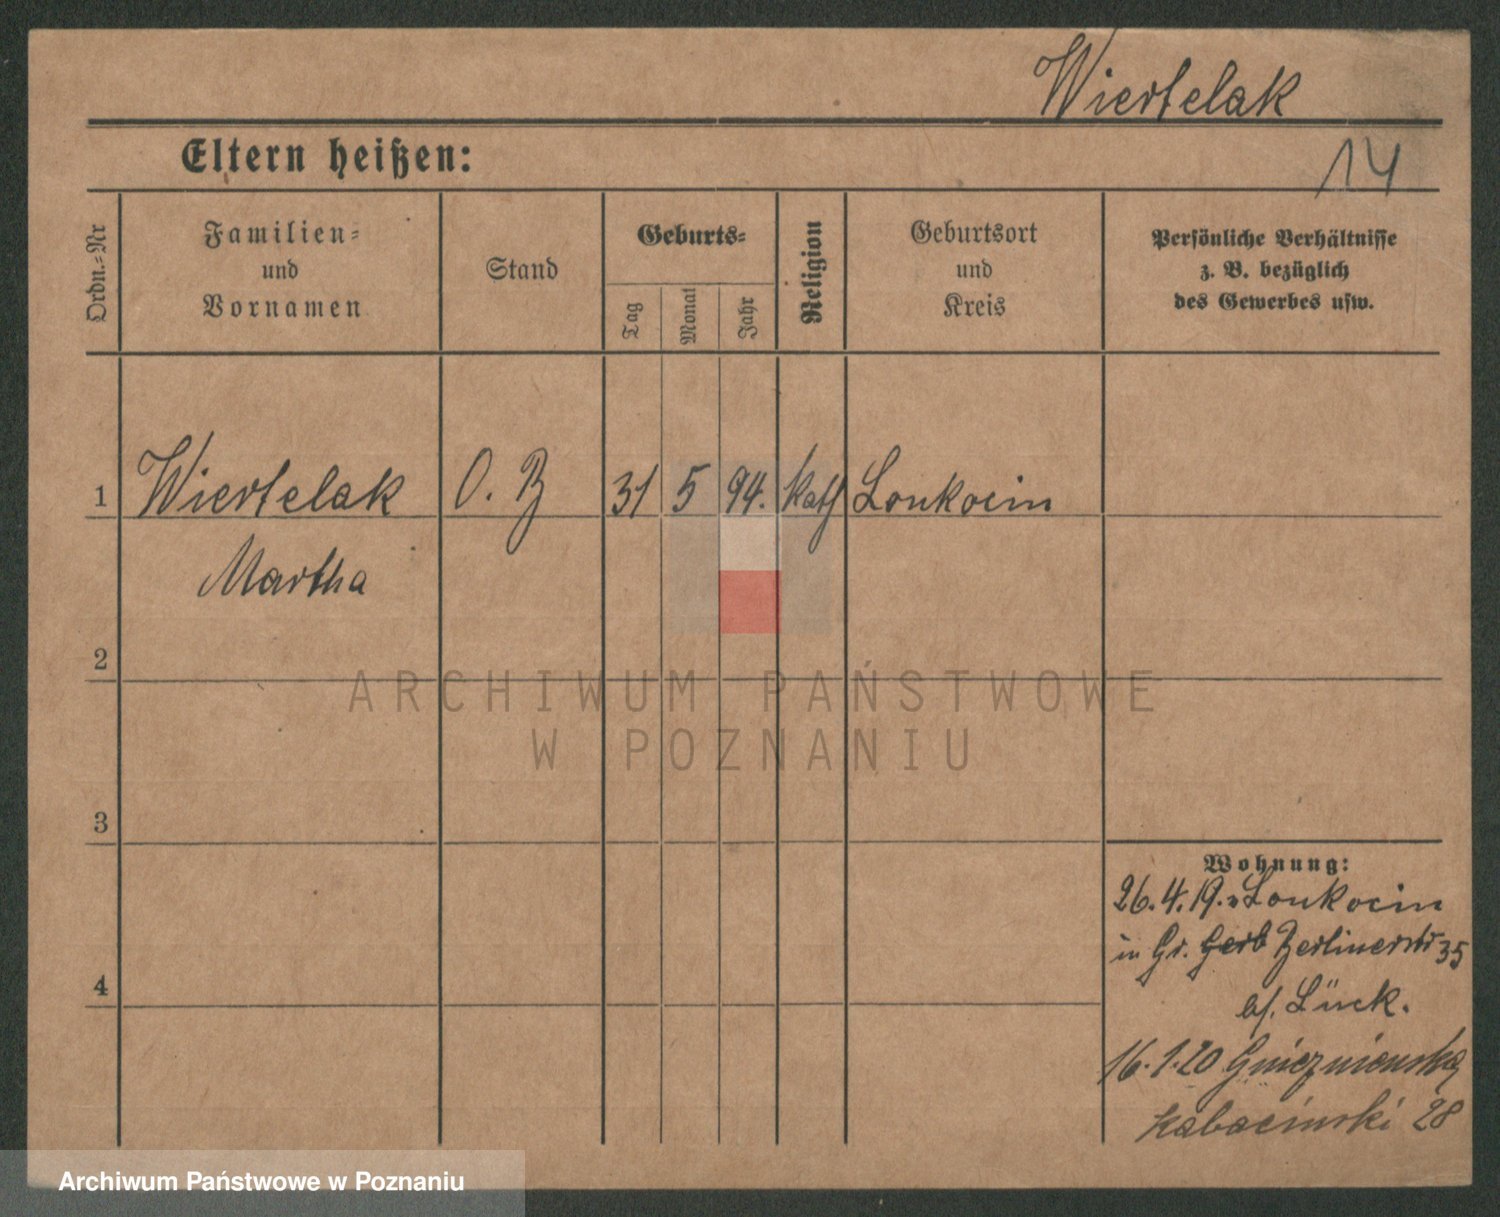 Wiertelak
Eltern heißen:
14
Ordn.=Nr
Familien=
und
Vornamen
Stand
Geburts=
Tag
Monat
Jahr
Religion
Geburtsort
und
Kreis
Persönliche Verhältnisse
z. B. bezüglich
des Gewerbes usw.
1 Wiertelak O. B 31 5 94. kath Lonkocin
Martha
2
3
4
Wohnung:
26.4.19. v Lonkocin
in Gr. Gerb Berlinerstr 35
bf. Lück.
16.1.20 Gnieznienska
Kabacinski 28
ARCHIWUM PAŃSTWOWE
W POZNANIU
Archiwum Państwowe w Poznaniu